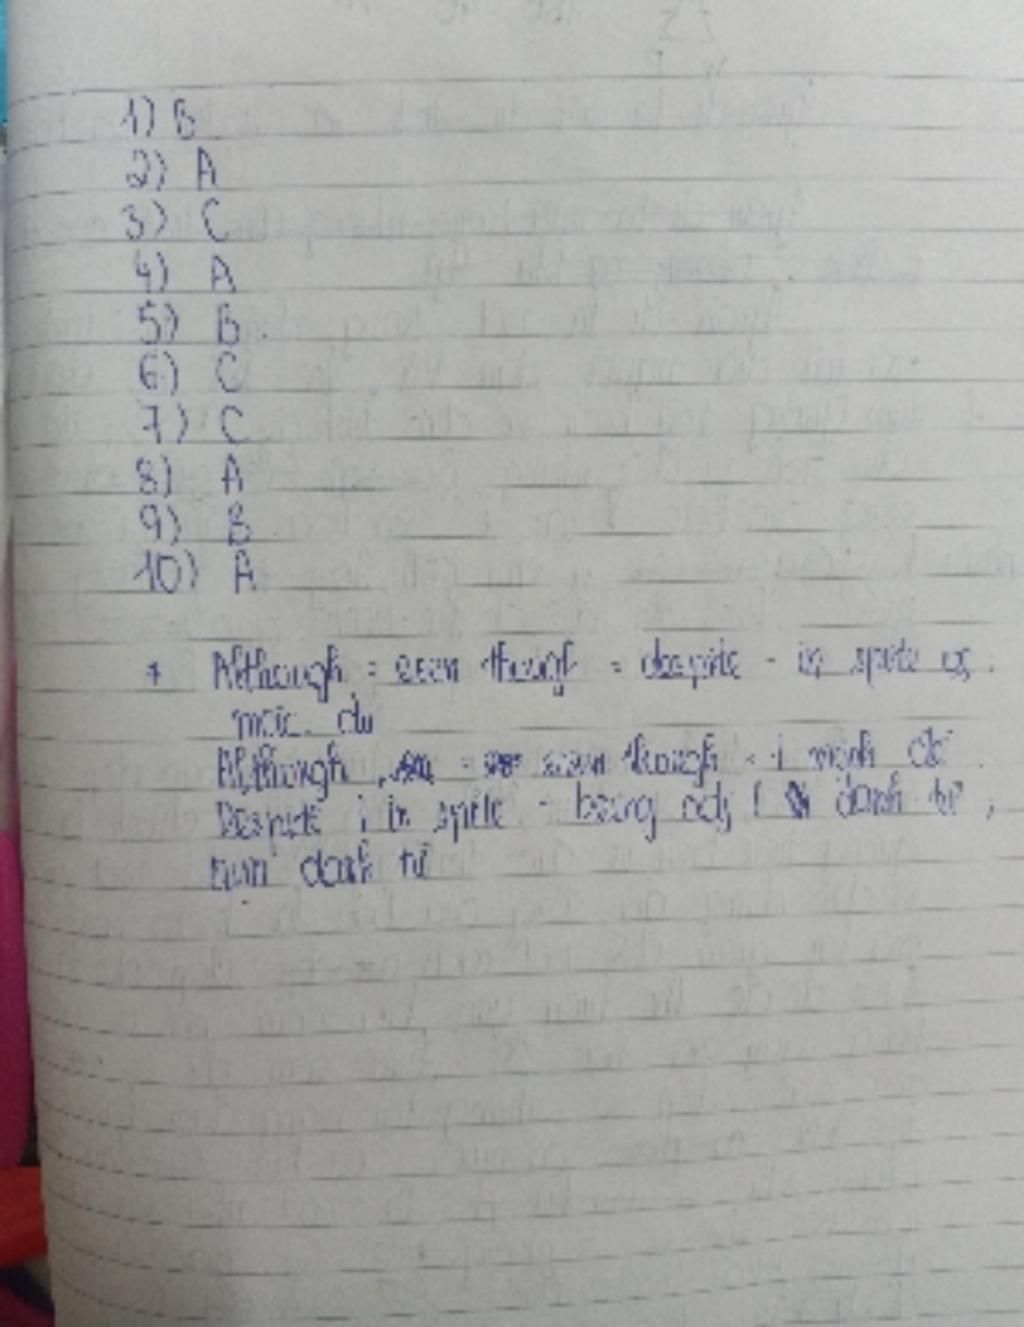 1) B
2) A
3) C
4) A
5) B
6) C
7) C
8) A
9) B
10) A
* Although = even though = despite = in spite of
mặc dù
Although, = even though = mệnh đề
Despite in spite = being adj danh từ,
danh từ